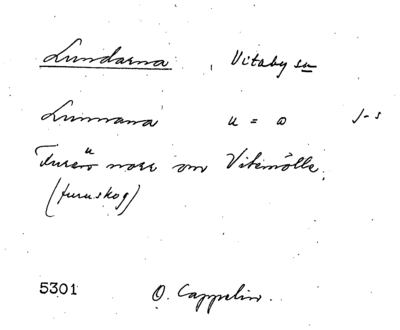 Lundarna, Vitaby sn
Lunnana u = o J-s
u
Furer norr om Vitemölle.
(furuskog)
5301 O. Cappelin.